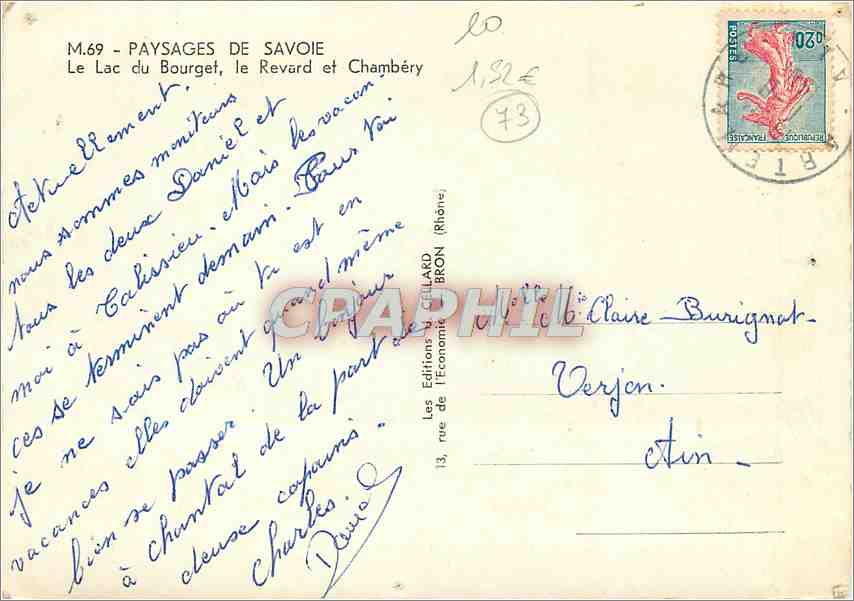 M.69 - PAYSAGES DE SAVOIE
Le Lac du Bourget, le Revard et Chambéry
20
1,52€
73
0,20
POSTES
REPUBLIQUE FRANÇAISE
ARTE
Actuellement.
nous sommes moniteurs
tous les deux Daniel et
moi à Talissieu. Mais les vacan-
ces se terminent demain. Pour toi
je ne sais pas où tu est en
vacances elles doivent quand même
bien se passer. Un bonjour
à Chantal de la part de
deux copains.
Charles.
Daniel
Les Editions J. CELLARD
13, rue de l'Economie, BRON (Rhône)
CRAPHIL
Melle Mie Claire Burignat-
Verjon.
Ain-